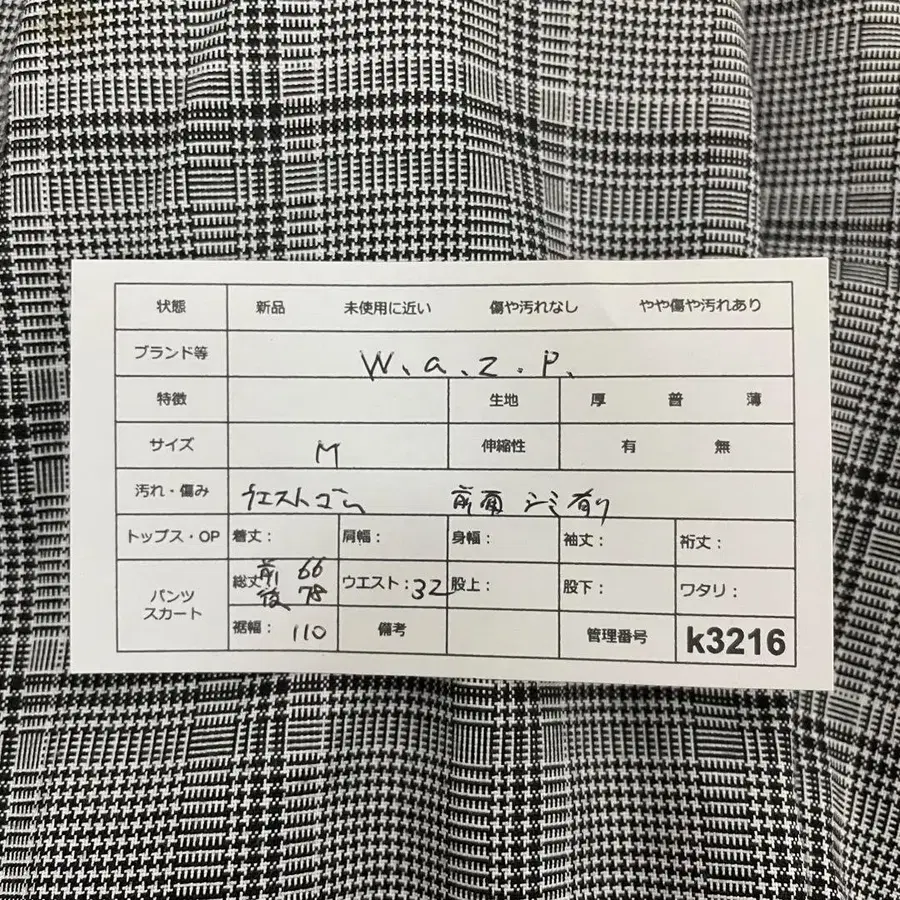 状態 新品 未使用に近い 傷や汚れなし やや傷や汚れあり
ブランド等 W.a.z.P.
特徴 生地 厚 普 薄
サイズ M 伸縮性 有 無
汚れ・傷み ウエストゴム 前面 シミ有り
トップス・OP 着丈: 肩幅: 身幅: 袖丈: 裄丈:
パンツ スカート 総丈 前 66 後 78 ウエスト:32 股上: 股下: ワタリ:
裾幅: 110 備考 管理番号 k3216